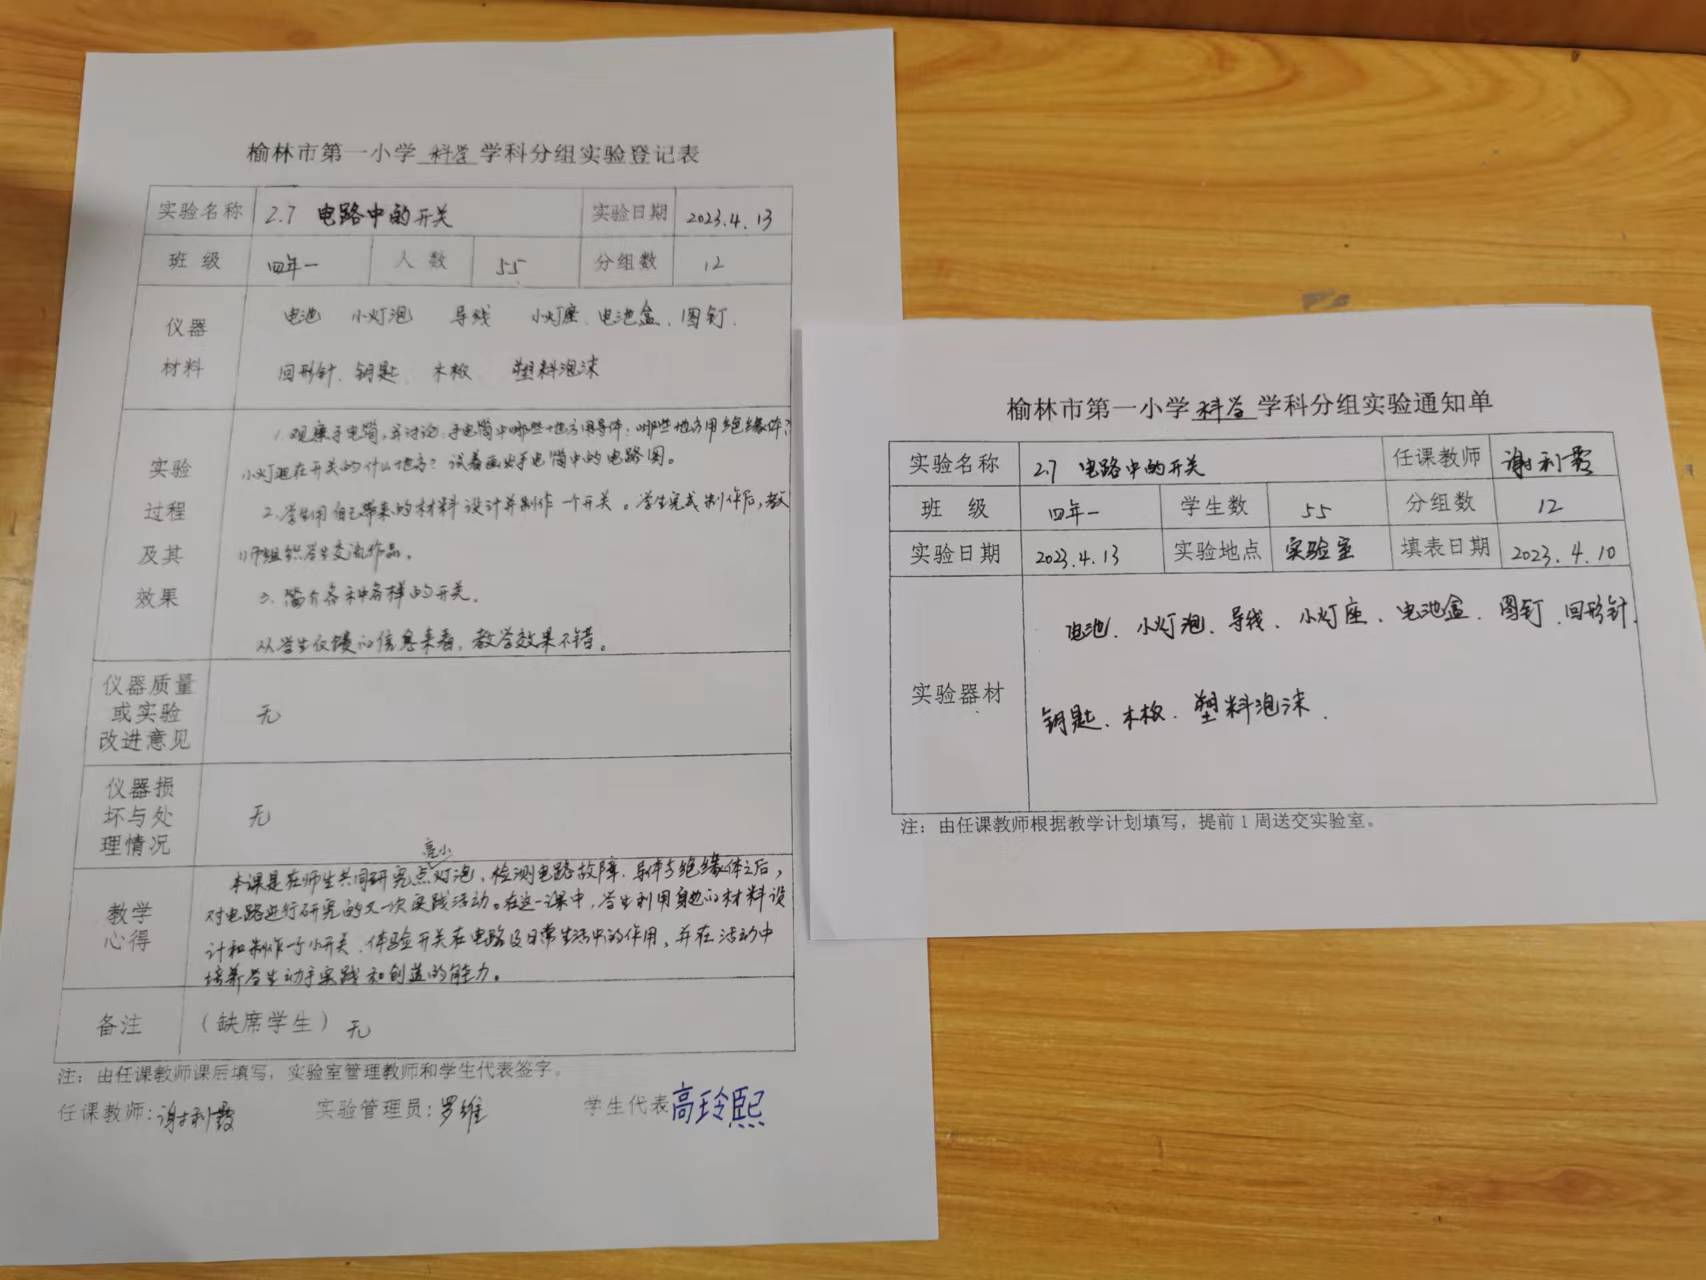 榆林市第一小学 科学 学科分组实验登记表
实验名称 2.7 电路中的开关 实验日期 2023.4.13
班 级 四年一 人 数 55 分组数 12
仪器 电池 小灯泡 导线 小灯座、电池盒、图钉、
材料 回形针、钥匙、木板、塑料泡沫
1. 观察手电筒,并讨论:手电筒中哪些地方用导体,哪些地方用绝缘体?
实验 小灯泡在开关的什么地方?试着画出手电筒中的电路图。
过程 2. 学生用自己带来的材料设计并制作一个开关。学生完成制作后,教
及其 师组织学生交流作品。
效果 3. 简介各种各样的开关。
从学生反馈的信息来看,教学效果不错。
仪器质量
或实验 无
改进意见
仪器损
坏与处 无
理情况
亮小
本课是在师生共同研究点灯泡、检测电路故障、导体与绝缘体之后,
教学 对电路进行研究的又一次实践活动。在这一课中,学生利用身边的材料设
心得 计和制作一个小开关,体验开关在电路及日常生活中的作用,并在活动中
培养学生动手实践和创造的能力。
备注 (缺席学生) 无
注:由任课教师课后填写,实验室管理教师和学生代表签字。
任课教师:谢利霞 实验管理员:罗维 学生代表 高玲熙
榆林市第一小学 科学 学科分组实验通知单
实验名称 2.7 电路中的开关 任课教师 谢利霞
班 级 四年一 学生数 55 分组数 12
实验日期 2023.4.13 实验地点 实验室 填表日期 2023.4.10
电池、小灯泡、导线、小灯座、电池盒、图钉、回形针、
实验器材 钥匙、木板、塑料泡沫、
注:由任课教师根据教学计划填写,提前1周送交实验室。